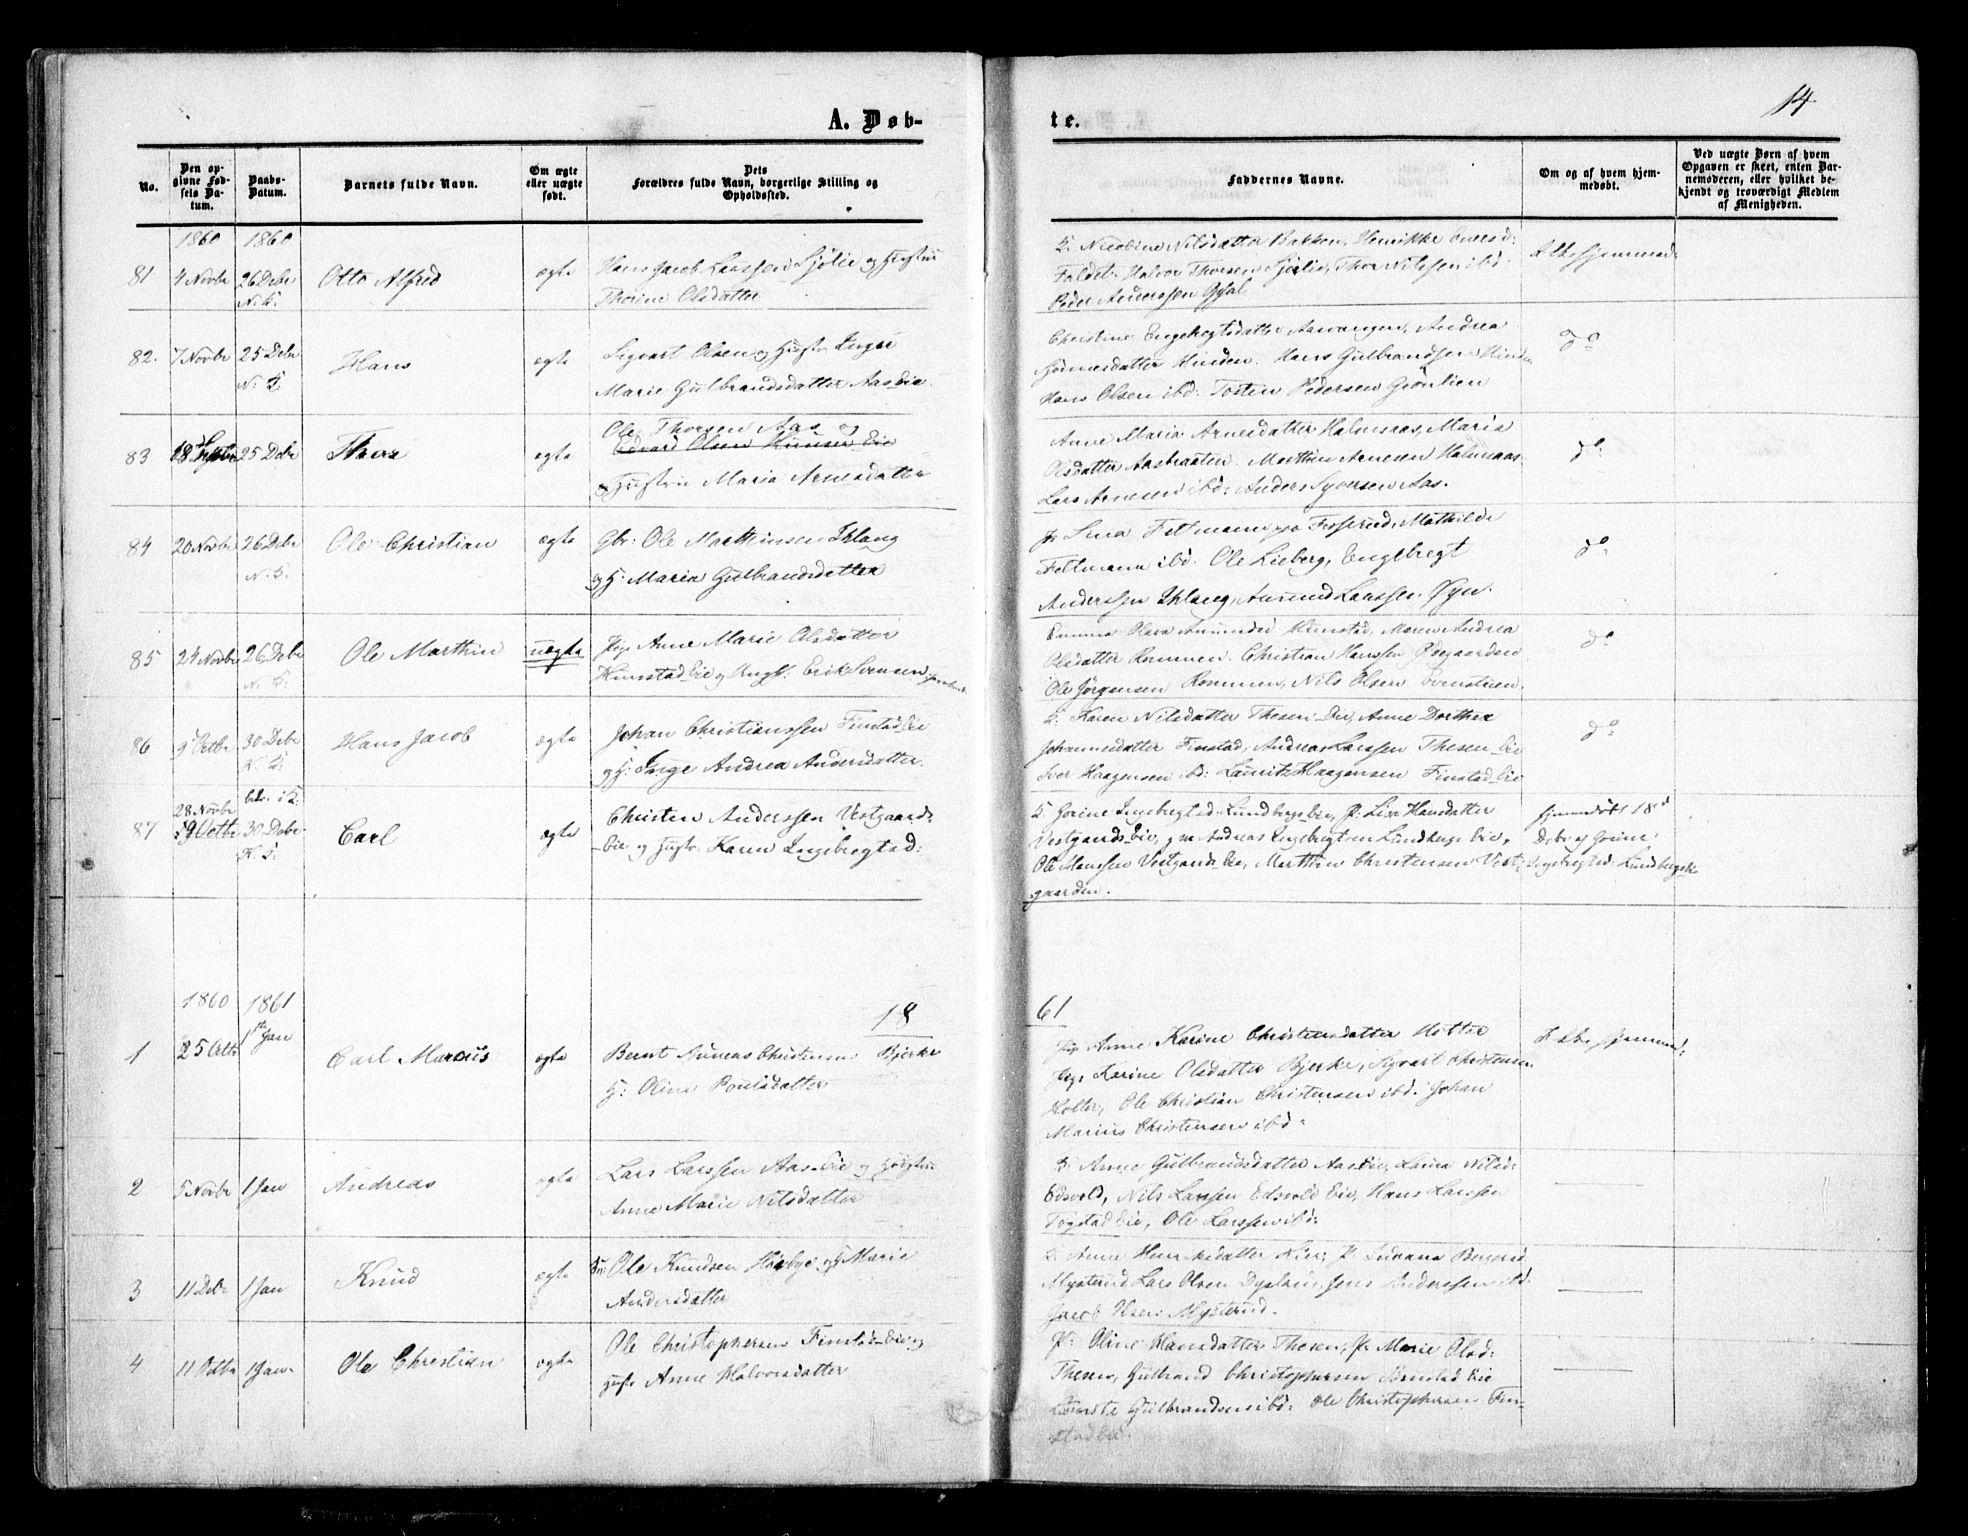 A. Døb-
te.
14
No.
Den op-
givne Fød-
sels Da-
tum.
Daabs-
Datum.
Barnets fulde Navn.
Om ægte
eller uægte
født.
Dets
Forældres fulde Navn, borgerlige Stilling og
Opholdssted.
Faddernes Navne.
Om og af hvem hjem-
medøbt.
Ved uægte Børn af hvem
Opgaven er skeet, enten Bar-
nemoderen, eller hvilket be-
kjendt og troværdigt Medlem
af Menigheden.
1860 1860
81 4 Novbr 26 Debr Otto Alfred ægte Hans Jacob Larssen Sjølie og Hustru
N. K. Thorine Olsdatter
K. Nicoline Nilsdatter Bakken, Henrikke Eversd:
Faldet. Halvor Thorsen Sjølie, Thor Nilssen ibd.
Peder Anderssen
82. 7 Novbr 25 Debr Hans ægte Sigvart Olsen og Hustr. Inger
N. K. Marie Gulbrandsdatter Aaseie.
Christine Engebregtsdatter Aavangen, Andrea
Hinden. Hans Gulbrandsen
Hans Olsen ibd. Tosten Pedersen Grønlien
do
83 18 Septbr 25 Debr Thora ægte Ole Thorsen Aas og
Edvard Olsen Eie
Hustru Maria Arnesdatter
Anne Maria Arnesdatter Halmraas, Maria
Olsdatter Aasbraaten. Marthin Arnesen Halmraas
Lars Arnesen ibd: Anders Syversen Aas.
do
84 20 Novbr 26 Debr Ole Christian ægte Gbr: Ole Marthinsen Ihlang
N. K. og H: Maria Gulbrandsdatter
Jf: Lena Feltmann, Mathilde
Feltmann ibd. Ole Lieberg, Engebregt
Anderssen Ihlang, Amund Larssen
do
85 24 Novbr 26 Debr Ole Marthin uægte Pige Anne Marie Olsdatter
N. K. Himstad Eie og Ungk: Erik Svensen
Emma Olava Himstad, Maren Andrea
Olsdatter Rommen. Christian Hanssen Ødegaarden
Ole Jørgensen Rommen, Nils Olsen
do
86 9 Octbr 30 Debr Hans Jacob ægte Johan Christianssen Finstad Eie
N. K. og H: Inge Andrea Andersdatter.
K. Karen Nilsdatter Thesen Eie, Anne Dorthea
Johannesdatter Finstad, Andreas Larssen Thesen Eie
Iver Haagensen ibd: Lauritz Haagensen Finstad Eie
do
28 Novbr
87 19 Octbr 30 Debr Carl ægte Christen Anderssen Vestgaards-
Eie og Hustr. Karen Ingebregtsd:
K. Gorine Ingebregtsd: Lundbergs Eie, P: Lise Hansdatter
Vestgaards Eie, gm Andreas Ingebregtsen Lundbergs Eie,
Ole Hanssen Vestgaards Eie, Marthin Christensen Vest-
gaarden.
Hjemmedøbt 18de
Debr af Gorine
Ingebregtsd: Lundbergs
1860 1861
18
61
1 25 Octbr 1ste Jan Carl Marius ægte Bernt Christensen Bjerke
H: Olina Poulsdatter
Pige Anne Karine Christensdatter Holter
Pige Karine Olsdatter Bjerke, Sigvart Christensen
Holter, Ole Christian Christensen ibd. Johan
Marius Christensen ibd.
2 5 Novbr 1 Jan Andreas ægte Lars Larssen Aas Eie og Hustru
Anne Marie Nilsdatter
K. Anne Gulbrandsdatter Aas Eie, Laura Nilsd:
Edsvold, Nils Larssen Edsvold Eie, Hans Larssen
Togstad Eie, Ole Larssen ibd:
3 11 Debr 1 Jan Knud ægte Ole Knudsen og H: Marie
Andersdatter
K. Anne
Mysterud Lars Olsen Jens Anderssen ibd.
Jacob Olsen Mysterud.
4 11 Octbr 1 Jan. Ole Christian ægte Ole Christophersen Finstad Eie og
Hustr. Anne Halvorsdatter
P: Oline Hansdatter Thesen, P: Marie Olsd:
Thesen, Gulbrand Christophersen Finstad Eie
Gulbrandsen ibd: Ole Christophersen Fin-
stad Eie.